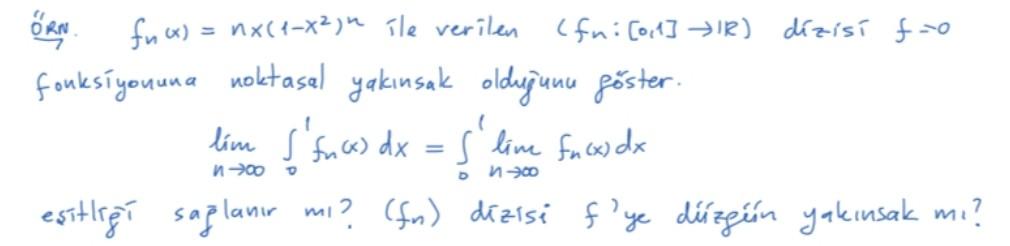 ÖRN. fn(x) = nx(1-x²)ⁿ ile verilen (fn: [0,1] → IR) dizisi f=0
fonksiyonuna noktasal yakınsak olduğunu göster.
lim n→∞ ∫₀¹ fn(x) dx = ∫₀¹ lim n→∞ fn(x) dx
eşitliği sağlanır mı? (fn) dizisi f'ye düzgün yakınsak mı?